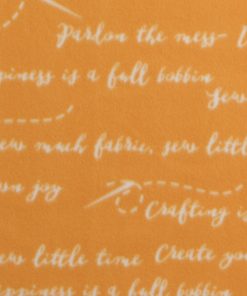 Pardon the mess-
ppiness is a full bobbin
Sew
ew much fabric, sew little
wn joy
Crafting i
ew little time Create you
ppiness is a full bobbin